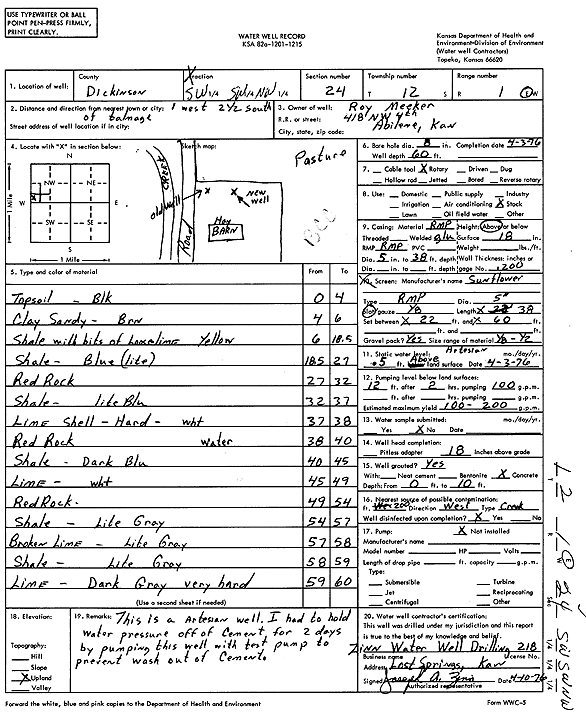 USE TYPEWRITER OR BALL
POINT PEN-PRESS FIRMLY,
PRINT CLEARLY.
WATER WELL RECORD
KSA 82a-1201-1215
Kansas Department of Health and
Environment-Division of Environment
(Water well Contractors)
Topeka, Kansas 66620
1. Location of well:
County
Dickinson
Fraction
SW 1/4 SW 1/4 NW 1/4
Section number
24
Township number
T 12 S
Range number
R 1 E/W
2. Distance and direction from nearest town or city: 1 west 2 1/2 south
of Talmage
Street address of well location if in city:
3. Owner of well: Roy Meeker
R.R. or street: 418 NW 4th
City, state, zip code: Abilene, Kan
4. Locate with "X" in section below:
N
NW NE
W E
SW SE
S
1 Mile
1 Mile
Sketch map:
Creek
Road
old well X
X new well
Hay
BARN
Pasture
5. Type and color of material From To
Topsoil - Blk 0 4
Clay Sandy - Brn 4 6
Shale with bits of Yellow 6 18.5
Shale - Blue (lite) 18.5 27
Red Rock 27 32
Shale - lite Blu 32 37
Lime Shell - Hard - wht 37 38
Red Rock water 38 40
Shale - Dark Blu 40 45
Lime - wht 45 49
Red Rock. 49 54
Shale - Lite Gray 54 57
Broken Lime - Lite Gray 57 58
Shale - Lite Gray 58 59
Lime - Dark Gray very hard 59 60
(Use a second sheet if needed)
6. Bore hole dia. 8 in. Completion date 4-3-76
Well depth 60 ft.
7. Cable tool X Rotary Driven Dug
Hollow rod Jetted Bored Reverse rotary
8. Use: Domestic Public supply Industry
Irrigation Air conditioning X Stock
Lawn Oil field water Other
9. Casing: Material RMP Height: Above or below
Threaded Welded glu Surface 18 in.
RMP RMP PVC Weight lbs./ft.
Dia. 5 in. to 38 ft. depth Wall Thickness: inches or
Dia. in. to ft. depth gage No. .200
10. Screen: Manufacturer's name Sunflower
Type RMP Dia. 5"
Slot/gauze 1/8 Length 38
Set between X 22 ft. and X 60 ft.
ft. and ft.
Gravel pack? Yes Size range of material 1/8 - 1/2
11. Static water level: Artesian mo./day/yr.
+5 ft. Above land surface Date 4-3-76
12. Pumping level below land surfaces:
12 ft. after 2 hrs. pumping 100 g.p.m.
ft. after hrs. pumping g.p.m.
Estimated maximum yield 100-200 g.p.m.
13. Water sample submitted: mo./day/yr.
Yes X No Date
14. Well head completion:
Pitless adapter 18 Inches above grade
15. Well grouted? Yes
With: Neat cement Bentonite X Concrete
Depth: From 0 ft. to 10 ft.
16. Nearest source of possible contamination:
ft. Direction West Type Creek
Well disinfected upon completion? X Yes No
17. Pump: X Not installed
Manufacturer's name
Model number HP Volts
Length of drop pipe ft. capacity g.p.m.
Type:
Submersible Turbine
Jet Reciprocating
Centrifugal Other
18. Elevation:
Topography:
Hill
Slope
X Upland
Valley
19. Remarks: This is a Artesian well. I had to hold
water pressure off of Cement, for 2 days
by pumping this well with test pump to
prevent wash out of Cement.
20. Water well contractor's certification:
This well was drilled under my jurisdiction and this report
is true to the best of my knowledge and belief.
Zinn Water Well Drilling 218
Business name
Address Lost Springs, Kan
Signed Joseph A. Zinn Date 4-10-76
Authorized representative
Forward the white, blue and pink copies to the Department of Health and Environment
Form WWC-5